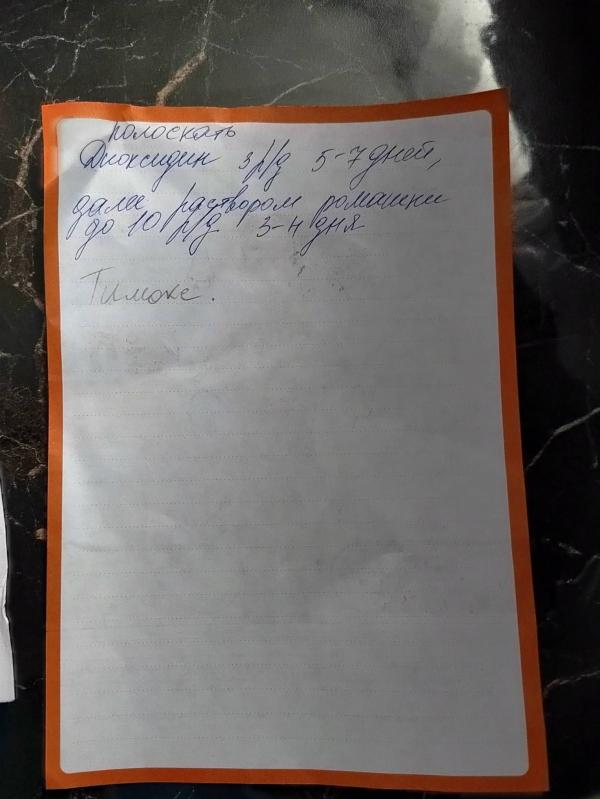 полоскать
Диоксидин 3 р/д 5-7 дней,
далее раствором ромашки
до 10 р/д 3-4 дня
Тимокс.